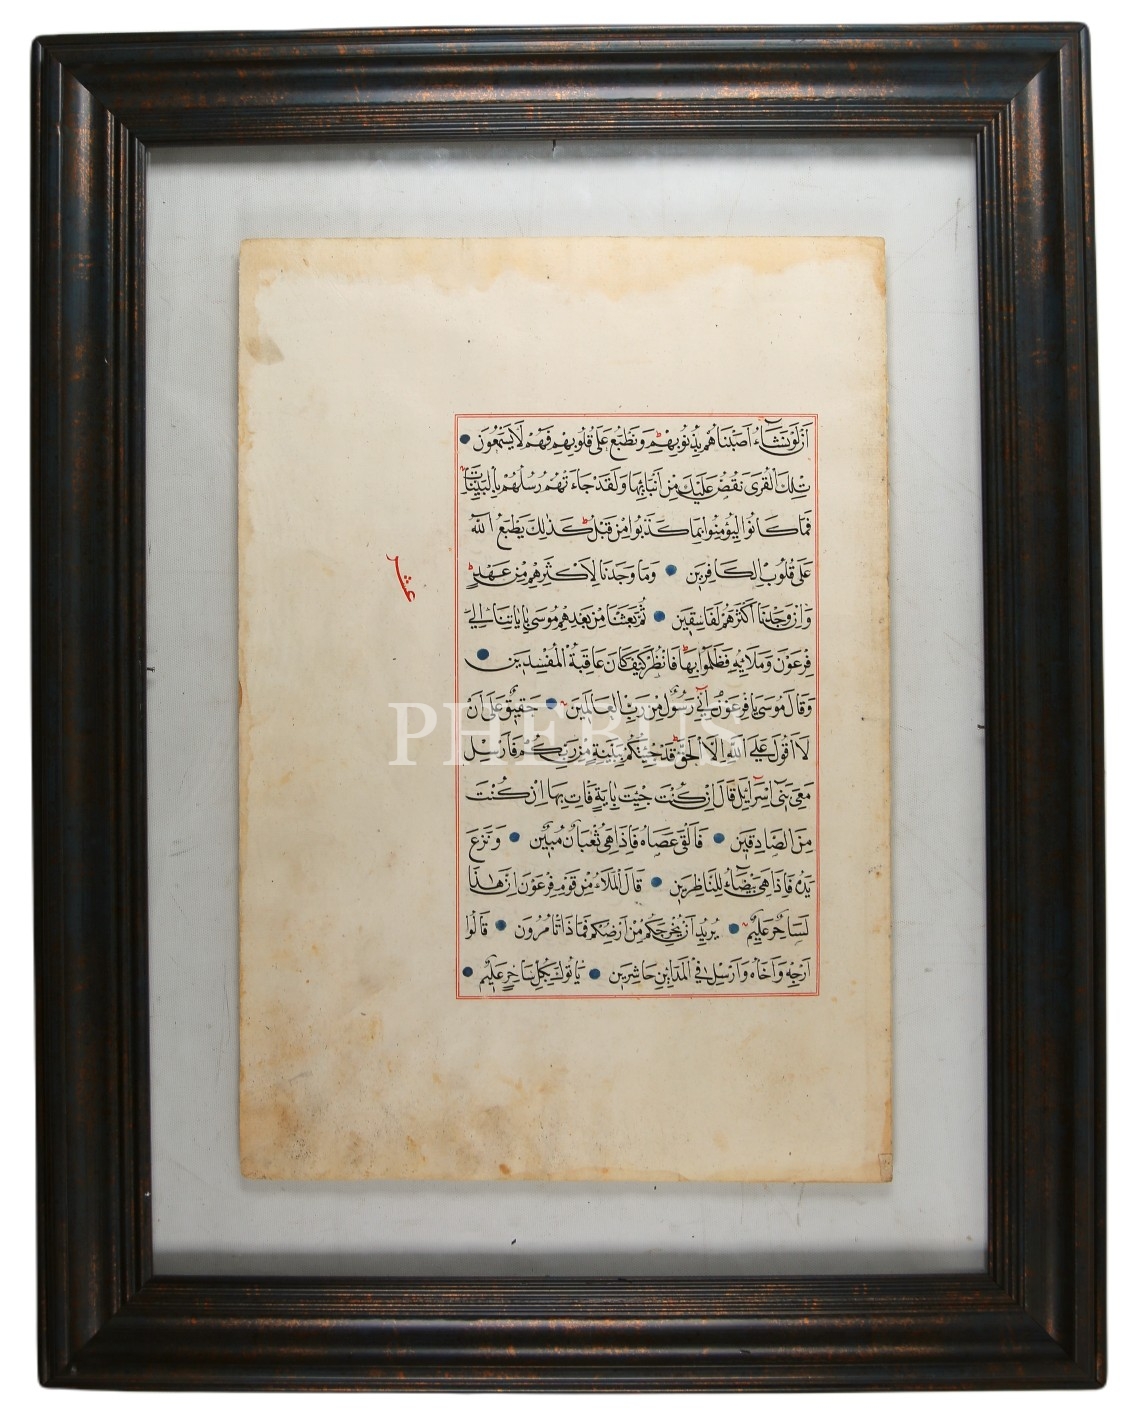 اَنْ لَوْ نَشَآءُ اَصَبْنَاهُمْ بِذُنُوبِهِمْ ط وَنَطْبَعُ عَلَى قُلُوبِهِمْ فَهُمْ لَا يَسْمَعُونَ
تِلْكَ الْقُرَى نَقُصُّ عَلَيْكَ مِنْ اَنْبَائِهَا وَلَقَدْ جَاءَتْهُمْ رُسُلُهُمْ بِالْبَيِّنَاتِ
فَمَا كَانُوا لِيُؤْمِنُوا بِمَا كَذَّبُوا مِنْ قَبْلُ ط كَذٰلِكَ يَطْبَعُ اللّٰهُ
عَلَى قُلُوبِ الْكَافِرِينَ وَمَا وَجَدْنَا لِاَكْثَرِهِمْ مِنْ عَهْدٍ ط
وَاِنْ وَجَدْنَا اَكْثَرَهُمْ لَفَاسِقِينَ ثُمَّ بَعَثْنَا مِنْ بَعْدِهِمْ مُوسَى بِاٰيَاتِنَا اِلَى
عشر
فِرْعَوْنَ وَمَلَائِهِ فَظَلَمُوا بِهَا ط فَانْظُرْ كَيْفَ كَانَ عَاقِبَةُ الْمُفْسِدِينَ
وَقَالَ مُوسَى يَا فِرْعَوْنُ اِنِّي رَسُولٌ مِنْ رَبِّ الْعَالَمِينَ حَقِيقٌ عَلَى اَنْ
لَا اَقُولَ عَلَى اللّٰهِ اِلَّا الْحَقَّ ط قَدْ جِئْتُكُمْ بِبَيِّنَةٍ مِنْ رَبِّكُمْ فَاَرْسِلْ
مَعِيَ بَنِي اِسْرَائِيلَ قَالَ اِنْ كُنْتَ جِئْتَ بِاٰيَةٍ فَاْتِ بِهَا اِنْ كُنْتَ
مِنَ الصَّادِقِينَ فَاَلْقَى عَصَاهُ فَاِذَا هِيَ ثُعْبَانٌ مُبِينٌ وَنَزَعَ
يَدَهُ فَاِذَا هِيَ بَيْضَآءُ لِلنَّاظِرِينَ قَالَ الْمَلَاُ مِنْ قَوْمِ فِرْعَوْنَ اِنَّ هٰذَا
لَسَاحِرٌ عَلِيمٌ يُرِيدُ اَنْ يُخْرِجَكُمْ مِنْ اَرْضِكُمْ فَمَاذَا تَاْمُرُونَ قَالُوا
اَرْجِهْ وَاَخَاهُ وَاَرْسِلْ فِي الْمَدَائِنِ حَاشِرِينَ يَاْتُوكَ بِكُلِّ سَاحِرٍ عَلِيمٍ
PHEBUS